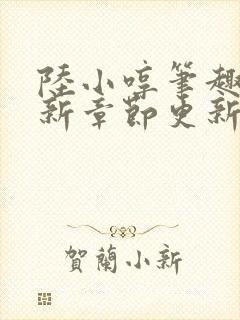 陸小啍筆趣
新章節更新
賀蘭小新